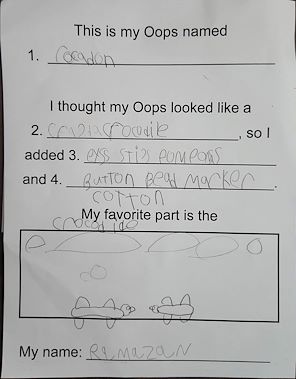 This is my Oops named
1. Rocodon
I thought my Oops looked like a
2. crocodile, so I
added 3. eyes stips pompoms
and 4. Button Bead marker.
cotton
My favorite part is the
crocodile
My name: Ramazan